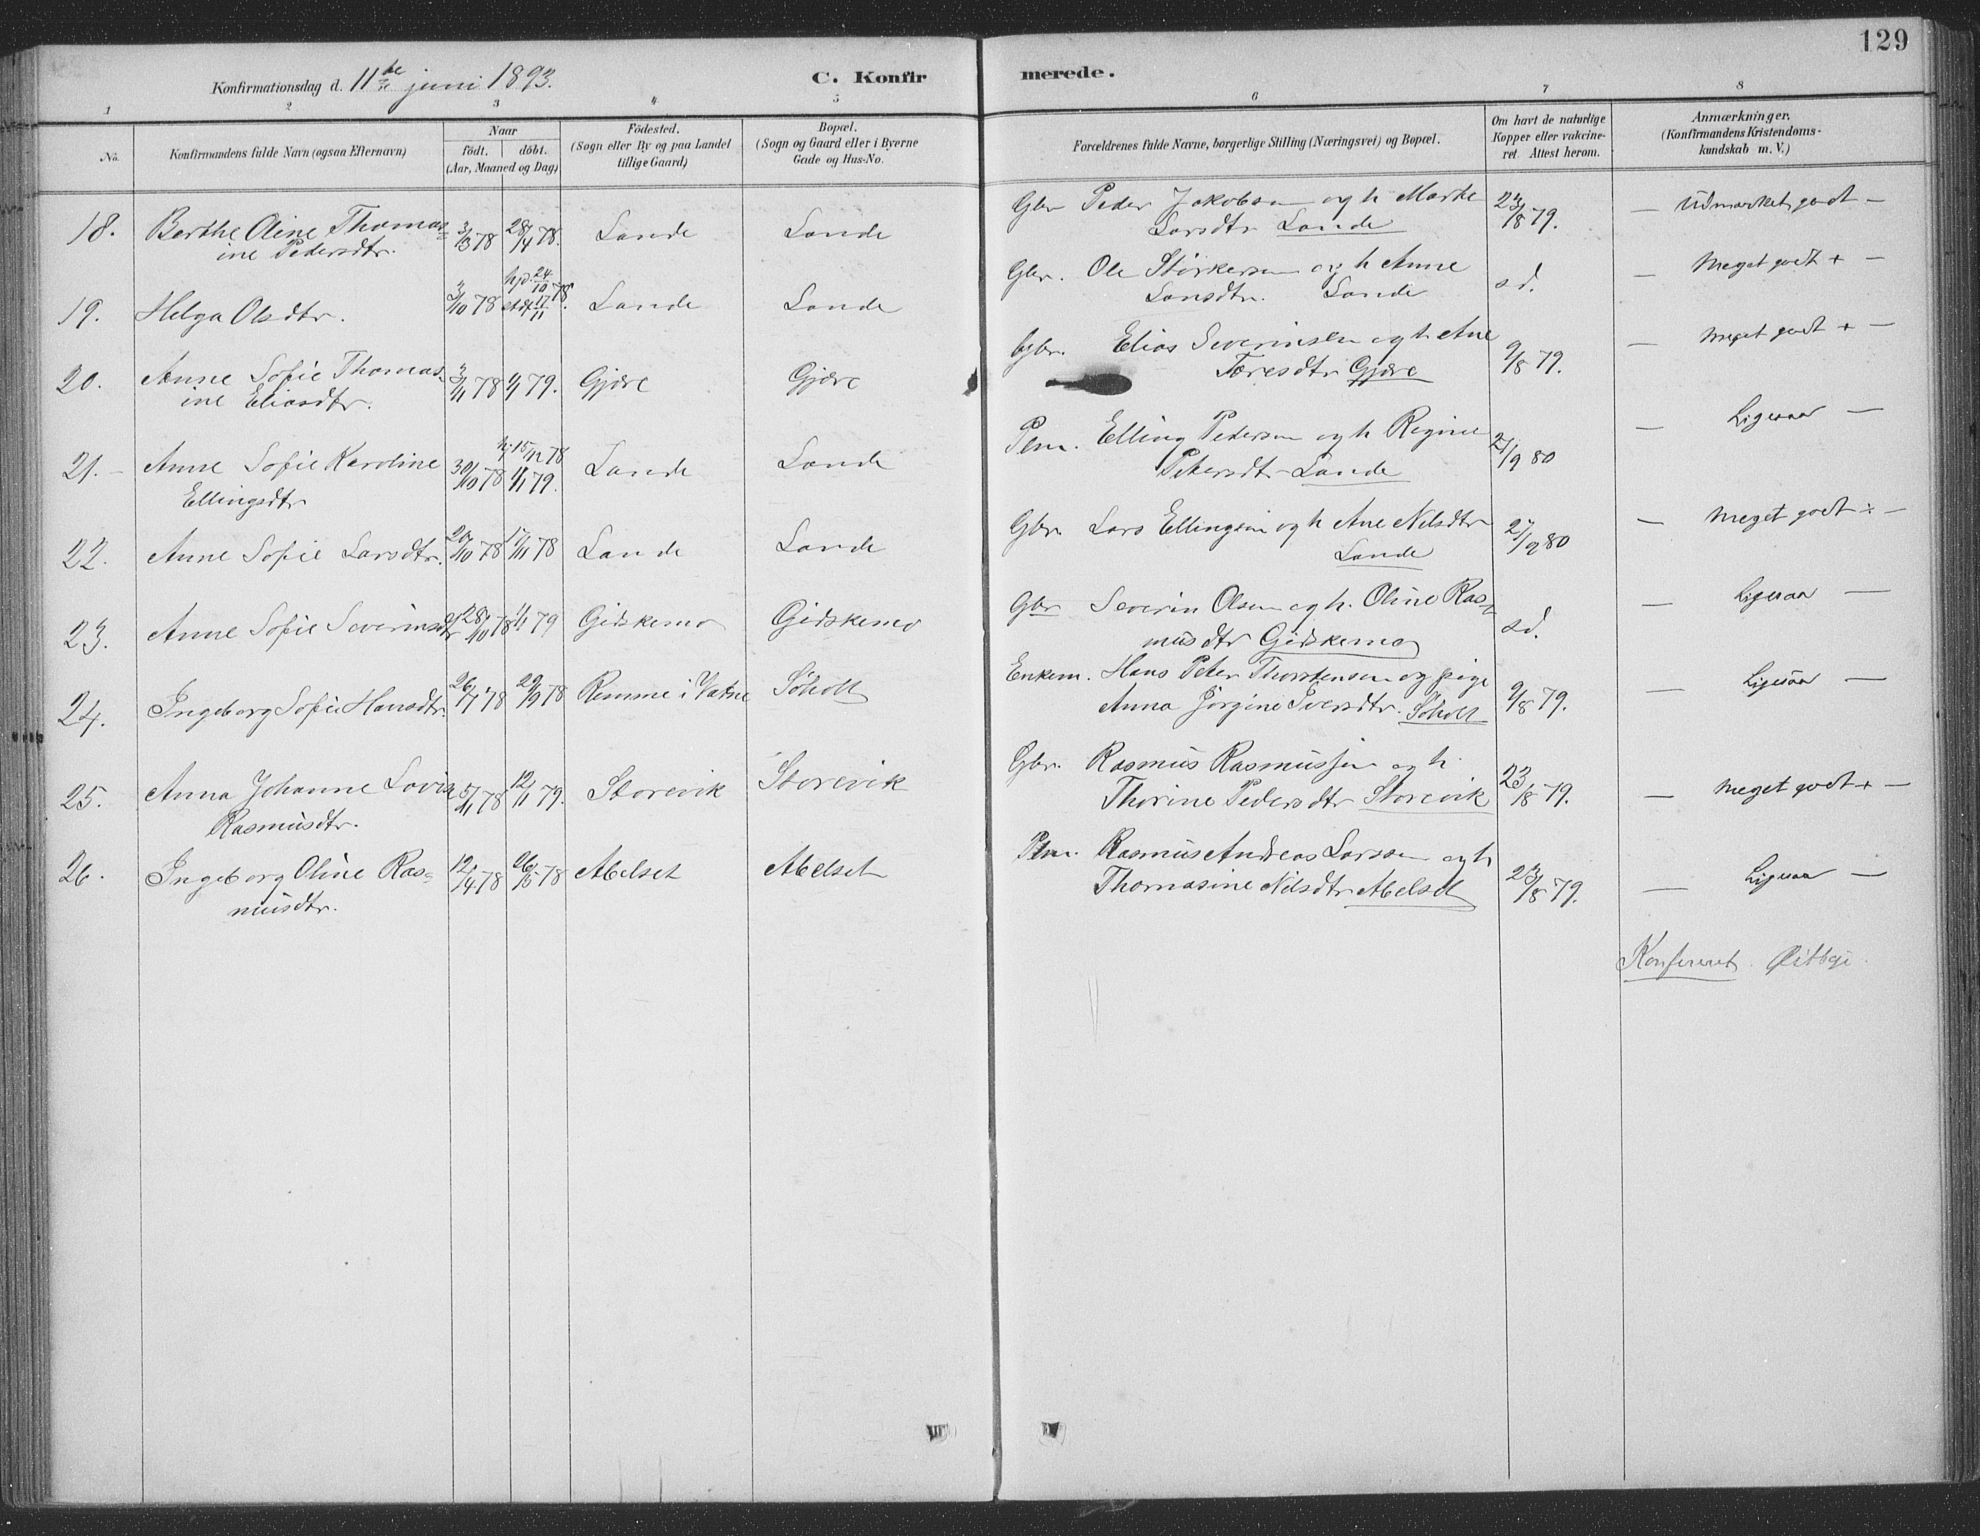 129
Konfirmationsdag d. 11te juni 1893.
C. Konfirmerede.
1 2 3 4 5 6 7 8
No.
Konfirmandens fulde Navn (ogsaa Efternavn)
Naar
födt. döbt.
(Aar, Maaned og Dag)
Födested.
(Sogn eller By og paa Landet
tillige Gaard)
Bopæl.
(Sogn og Gaard eller i Byerne
Gade og Hus-No.
Forældrenes fulde Navne, borgerlige Stilling (Næringsvei) og Bopæl.
Om havt de naturlige
Kopper eller vakcine-
ret Attest herom.
Anmærkninger.
(Konfirmandens Kristendoms-
kundskab m. V.)
18. Berthe Oline Thomas= 3/3 78 28/4 78. Lande Lande Gbr Peder Jakobsen og h Marthe 23/8 79. — Udmærket godt —
ine Pedersdtr. Larsdtr Lande
19. Helga Olsdtr. 3/10 78 hjd. 24/10 78. stdf 17/11 Lande Lande Gbr. Ole Størkersen og h Anne sd. — Meget godt + —
Larsdtr. Lande
20. Anne Sofie Thomas- 3/11 78 1/1 79. Gjøre Gjøre Gbr. Elias Severinsen og h Ane 9/8 79. — Meget godt + —
ine Eliasdtr. Toresdtr Gjøre
21. Anne Sofie Karoline 30/10 78 15/12 78 1/1 79. Lande Lande Plm. Elling Pedersen og h Regine 27/9 80 — Ligesaa —
Ellingsdtr Petersdtr Lande
22. Anne Sofie Larsdtr. 20/10 78 17/11 78 Lande Lande Gbr. Lars Ellingsen og h Ane Nilsdtr 27/9 80 — Meget godt ÷ —
Lande
23. Anne Sofie Severinsdtr 28/10 78 1/1 79 Gidskemo Gidskemo Gbr Severin Olsen og h. Oline Ras= sd. — Ligesaa —
musdtr Gidskemo
24. Ingeborg Sofie Hansdtr. 26/7 78 29/9 78 Remme i Vatne Søholt Enkem. Hans Peter Thorstensen og pige 9/8 79. — Ligesaa —
Anna Jørgine Iversdtr. Søholt
25. Anna Johanne Lovise 5/11 78 12/1 79. Storevik Storevik Gbr. Rasmus Rasmussen og h. 23/8 79. — Meget godt + —
Rasmusdtr. Thorine Pedersdtr Storevik
26. Ingeborg Oline Ras= 12/4 78 26/5 78 Abelset Abelset Plm. Rasmus Andreas Larssen og h 23/8 79. — Ligesaa —
musdtr. Thomasine Nilsdtr Abelset
Konfereret.